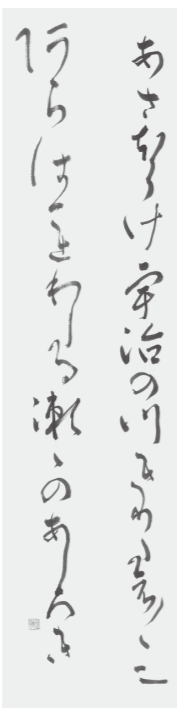 あさほらけ宇治の川きりたえゝに
あらはれわたる瀬ゝのあしろき